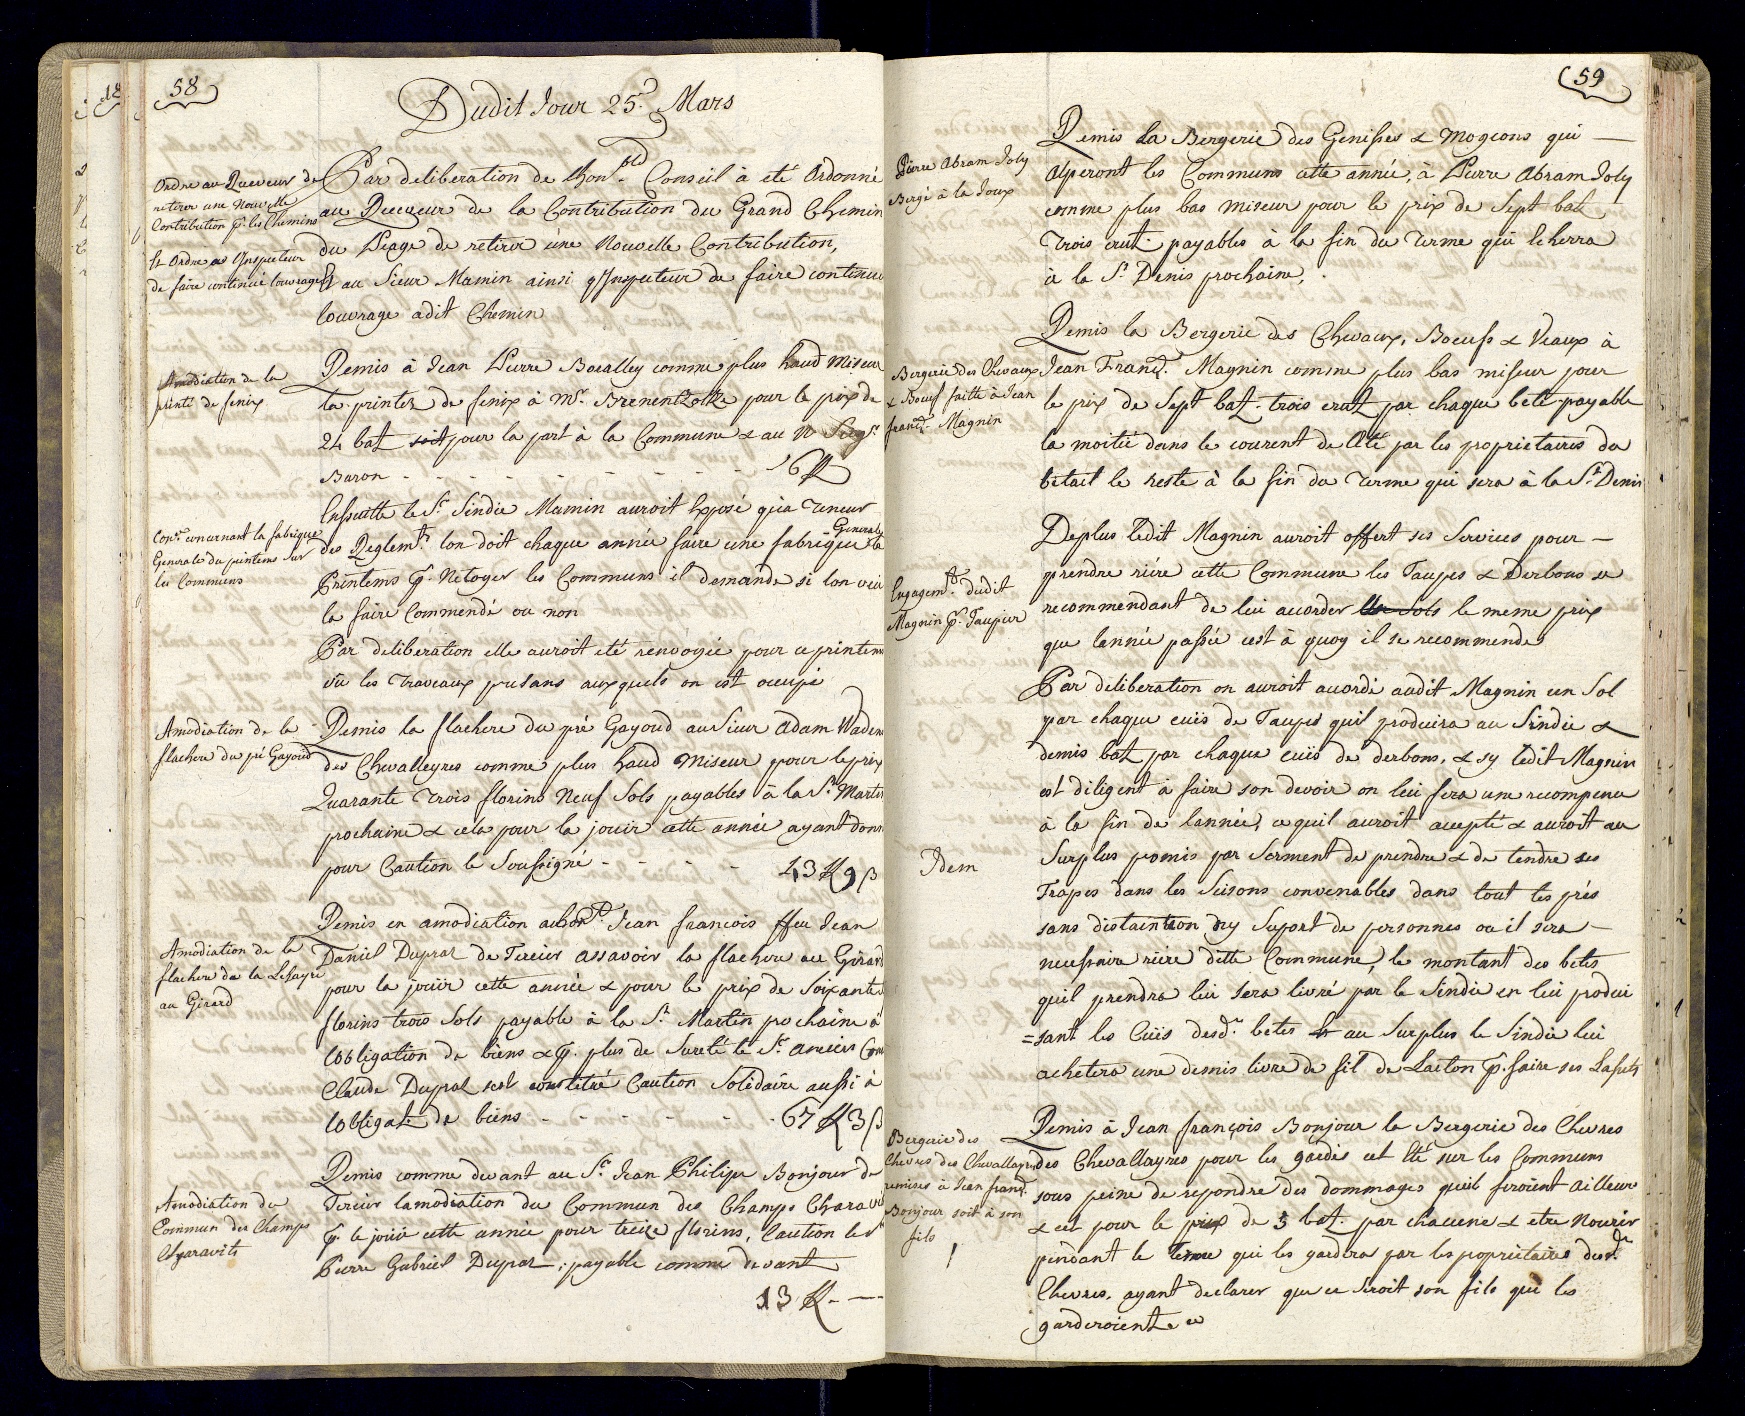 58
Dudit Jour 25.e Mars
Ordre au Receveur de
retirer une Nouvelle
Contribution p.r les Chemins
Et Ordre a Inspecteur
de faire continué louvrage
Par deliberation de lhon.ble Conseil à eté Ordonné
au Receveur de la Contribution du Grand Chemin
du Peage de retirer une Nouvelle Contribution,
Et au Sieur Mamin ainsi q.e Inspecteur de faire continuer
louvrage adit Chemin
Amodiation de la
printé de fenix
Remis à Jean Pierre Bocalley comme plus haud Miseur
la printéz de fenix à Mr. pour le prix de
24 bat soit pour la part à la Commune & au N Seig.r
Baron - - - - - - - 6 ff
Con.t concernant la fabrique
Generale du printems sur
les Communs
Ensuitte le S.r Sindic Mamin auroit Exposé qu'a Teneur
des Reglem.ts lon doit chaque année faire une fabrique Generale le
Printems p.r Netoyer les Communs il demande si lon veu
la faire Commendé ou non
Par deliberation elle auroit eté renvoyée pour ce printems
vû les Traveaux presans auxquels on est occupé
Amodiation de la
flachere du pré Gayoud
Remis la flachere du pré Gayoud au Sieur Adam Waden
des Chevalleyres comme plus haud Miseur pour le prix
Quarante Trois florins Neuf Sols payables à la S.t Martin
prochaine & cela pour la jouir cette année ayant donné
pour Caution le Soussigné - - - - 43 ff 9 ß
Amodiation de la
flachere de la Lesayre
au Girard
Remis en amodiation au Jean françois ffeu Jean
Daniel Dupraz de Tercier assavoir la flachere au Girard
pour la jouir cette année & pour le prix de Soixante
florins trois Sols payable à la S.t Martin prochaine à
lobligation de biens & p.r plus de Sureté le S.r ancien Con
Claude Dupraz sest constitué Caution Solidaire aussi à
lobligat. de biens - - - - - - 67 ff 3 ß
Amodiation du
Commun des Champs
Charavits
Remis comme devant au S.r Jean Philipe Bonjour de
Tercier lamodiation du Commun des Champs Charavits
p.r le jouir cette année pour treize florins, Caution le S.r
Pierre Gabriel Dupraz, payable comme devant
13 ff - —
59
Pierre Abram Joly
Bergé à la Joux
Remis la Bergerie des Genisses & Mogeons qui —
Alperont les Communs cette année, à Pierre Abram Joly
comme plus bas miseur pour le prix de Sept batz
Trois crutz payables à la fin du Terme qui Scherra
à la S.t Denis prochaine,
Bergerie des Chevaux
& Boeuf faitte à Jean
franç.s Magnin
Remis la Bergerie des Chevaux, Boeufs & Veaux à
Jean Franç.s Magnin comme plus bas miseur pour
le prix de Sept batz trois crutz par chaque bete payable
la moitié dans le courent de lété par les proprietaires du
betail le reste à la fin du Terme qui sera à la S.t Denis
Engagem.t dudit
Magnin p.r Taupier
Deplus ledit Magnin auroit offert ses Services pour —
prendre riére cette Commune les Taupes & Derbons se
recommendant de lui accorder le meme prix
que lannée passée cest à quoy il se recommende
Par deliberation on auroit accordé audit Magnin un Sol
par chaque cuis de Taupes quil produira au Sindic &
demis batz par chaque cuis de derbons, & sy ledit Magnin
est diligent à faire son devoir on lui fera une recompence
à la fin de lannée, ce quil auroit accepté & auroit au
Idem
Surplus promis par Serment de prendre & de tendre ses
Trapes dans les Seisons convenables dans tout les prés
sans distaintion ny Suport de personnes ou il sera —
necessaire riére ditte Commune, le montant des betes
quil prendra lui Sera livré par le Sindic en lui produi
=sant les Cuis desd.t betes au Surplus le Sindic lui
achetera une demis livre de fil de Laiton p.r faire ses Lassets
Bergerie des
Chevres des Chevallayres
remises à Jean franç.s
Bonjour soit à son
fils
Remis à Jean françois Bonjour la Bergerie des Chevres
des Chevallayres pour les gardés cet Eté sur les Communs
sous peine de repondre des dommages quil feroient ailleurs
& cet pour le prix de 3 batz par chacune & etre Nourir
pendant le Terme qui les gardera par les proprietaires desd.tes
Chevres, ayant declarer que ce Seroit son fils qui les
garderoient